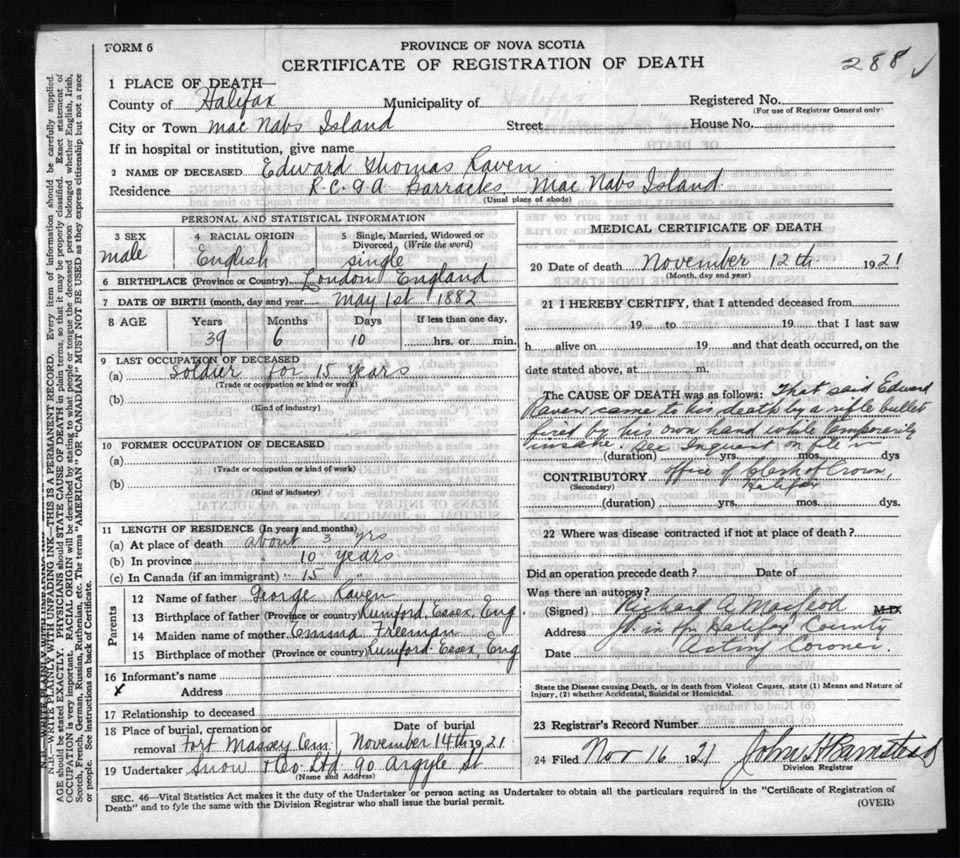 FORM 6
PROVINCE OF NOVA SCOTIA
CERTIFICATE OF REGISTRATION OF DEATH
288 ✓
1 PLACE OF DEATH—
County of Halifax Municipality of
Registered No.
(For use of Registrar General only)
City or Town Mac Nabs Island Street House No.
If in hospital or institution, give name
2 NAME OF DECEASED Edward Thomas Raven
Residence R.C.G.A. Barracks Mac Nabs Island.
(Usual place of abode)
PERSONAL AND STATISTICAL INFORMATION
3 SEX
male
4 RACIAL ORIGIN
English
5 Single, Married, Widowed or Divorced (Write the word)
single
6 BIRTHPLACE (Province or Country) London England
7 DATE OF BIRTH (month, day and year May 1st 1882
8 AGE Years Months Days If less than one day,
39 6 10 hrs. or min.
9 LAST OCCUPATION OF DECEASED
(a) Soldier for 15 years
(Trade or occupation or kind or work)
(b)
(Kind of industry)
10 FORMER OCCUPATION OF DECEASED
(a)
(Trade or occupation or kind of work)
(b)
(Kind of industry)
11 LENGTH OF RESIDENCE (In years and months)
(a) At place of death about 3 yrs
(b) In province 10 years
(c) In Canada (if an immigrant) 15 "
Parents
12 Name of father George Raven
13 Birthplace of father (Province or country) Rumford, Essex, Eng.
14 Maiden name of mother Emma Freeman
15 Birthplace of mother (Province or country) Rumford Essex, Eng
16 Informant's name
✓ Address
17 Relationship to deceased
18 Place of burial, cremation or removal Fort Massey Cem,
Date of burial
November 14th 1921
19 Undertaker Snow & Co. Ltd 90 Argyle St
(Name and Address)
MEDICAL CERTIFICATE OF DEATH
20 Date of death November 12th 1921
(Month, day and year)
21 I HEREBY CERTIFY, that I attended deceased from
19 to 19 that I last saw
h alive on 19 and that death occurred, on the
date stated above, at m.
The CAUSE OF DEATH was as follows: That said Edward
Raven came to his death by a rifle bullet
fired by his own hand while temporarily
insane. See Inquest on file in
(duration) yrs. mos. dys
office of Clerk of Crown,
Halifax
CONTRIBUTORY
(Secondary)
(duration) yrs. mos. dys.
22 Where was disease contracted if not at place of death?
Did an operation precede death? Date of
Was there an autopsy?
(Signed) Richard A. MacLeod M.D.
Address Halifax County
Date Acting Coroner.
State the Disease causing Death, or in death from Violent Causes, state (1) Means and Nature of
Injury, (2) whether Accidental, Suicidal or Homicidal.
23 Registrar's Record Number
24 Filed Nov 16 1921 John H Barnstead
Division Registrar
SEC. 46—Vital Statistics Act makes it the duty of the Undertaker or person acting as Undertaker to obtain all the particulars required in the "Certificate of Registration of
Death" and to fyle the same with the Division Registrar who shall issue the burial permit.
(OVER)
N.B.—WRITE PLAINLY WITH UNFADING INK—THIS IS A PERMANENT RECORD. Every item of information should be carefully supplied.
AGE should be stated EXACTLY. PHYSICIANS should STATE CAUSE OF DEATH in plain terms, so that it may be properly classified. Exact statement of
OCCUPATION is very important. RACIAL ORIGIN will be described by stating to what people or tongue the deceased person belonged whether English, Irish,
Scotch, French, German, Russian, Ruthenian, etc. The terms "AMERICAN" OR "CANADIAN" MUST NOT BE USED as they express citizenship but not a race
or people. See instructions on back of Certificate.